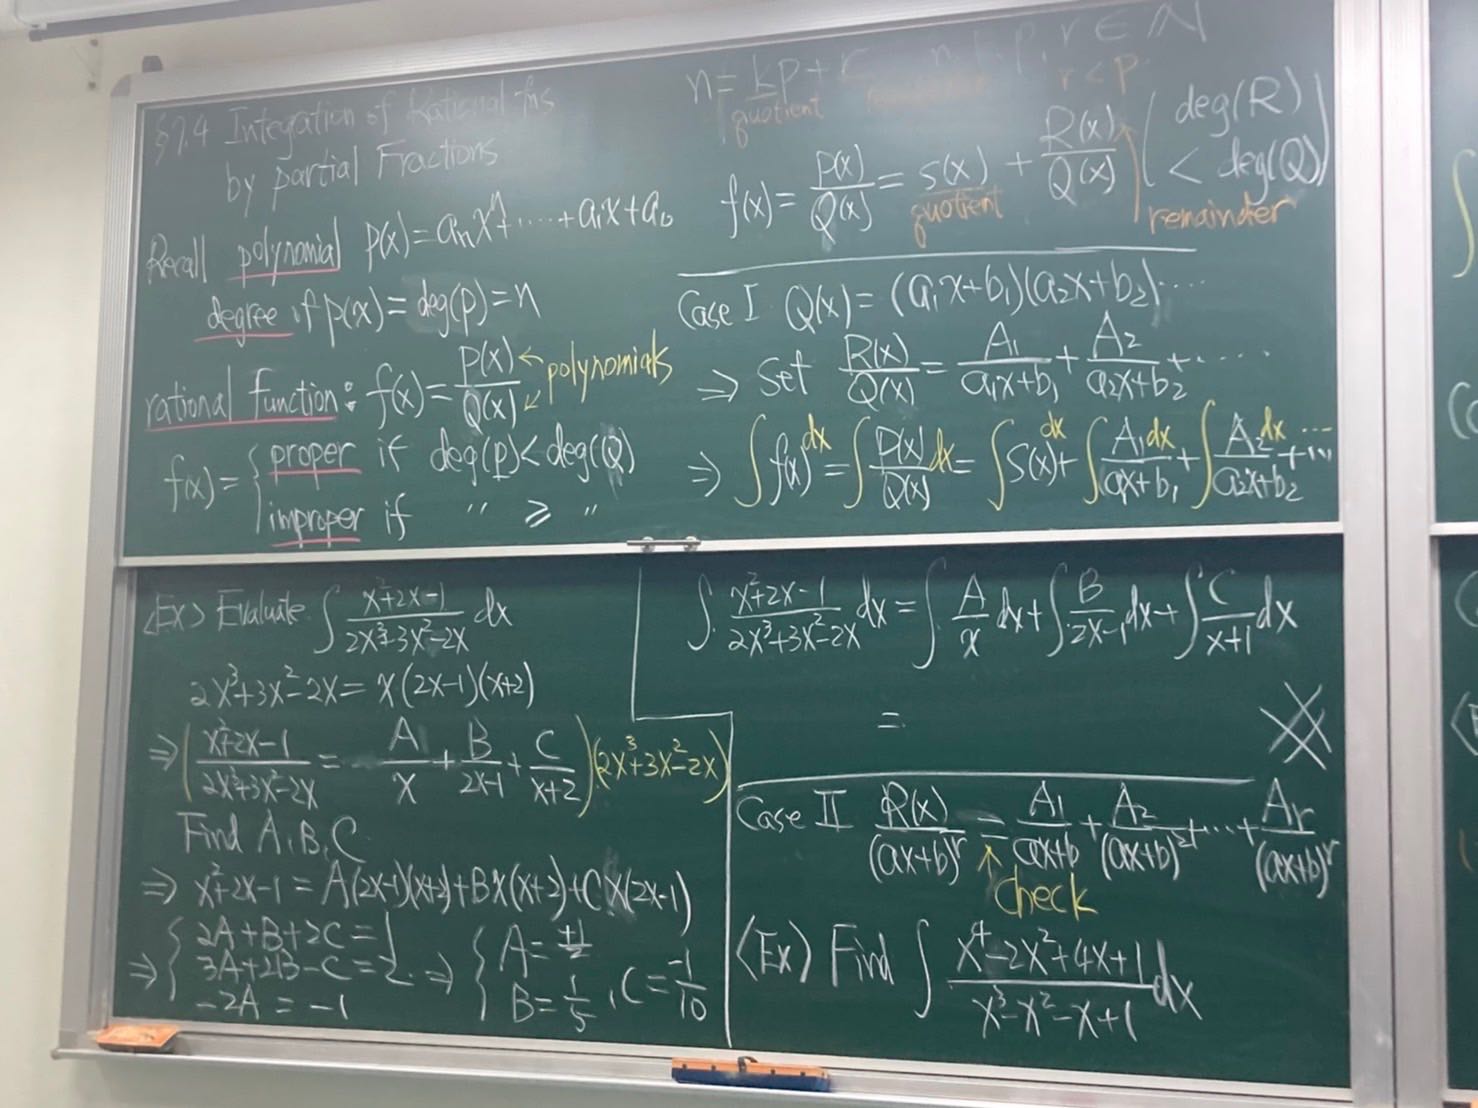 §7.4 Integation of Rational fns
by partial Fractions
Recall polynomial p(x) = aₙxⁿ+·····+a₁x+a₀
degree if p(x) = deg(p) = n
rational function: f(x) = P(x)/Q(x) ← polynomials
f(x) = { proper if deg(p) < deg(Q)
improper if " ≥ "
n = kp + r n, k, p, r ∈ ℕ
quotient r < p
f(x) = P(x)/Q(x) = S(x) + R(x)/Q(x) ( deg(R) < deg(Q) )
quotient remainder
Case I Q(x) = (a₁x+b₁)(a₂x+b₂)·····
⇒ Set R(x)/Q(x) = A₁/(a₁x+b₁) + A₂/(a₂x+b₂) + ·····
⇒ ∫f(x)dx = ∫P(x)/Q(x) dx = ∫S(x)dx + ∫A₁/(ax+b₁) dx + ∫A₂/(a₂x+b₂) dx + ···
<Ex> Evaluate ∫ (x²+2x-1)/(2x³+3x²-2x) dx
2x³+3x²-2x = x(2x-1)(x+2)
⇒ ( (x²+2x-1)/(2x³+3x²-2x) = A/x + B/(2x-1) + C/(x+2) )(2x³+3x²-2x)
Find A, B, C
⇒ x²+2x-1 = A(2x-1)(x+2)+Bx(x+2)+Cx(2x-1)
⇒ { 2A+B+2C=1
3A+2B-C=2
-2A = -1
⇒ { A = +1/2
B = 1/5, C = -1/10
∫ (x²+2x-1)/(2x³+3x²-2x) dx = ∫ A/x dx + ∫ B/(2x-1) dx + ∫ C/(x+1) dx
=
Case II R(x)/(ax+b)ʳ = A₁/(ax+b) + A₂/(ax+b)² + ··· + Aᵣ/(ax+b)ʳ
↑ check
<Ex> Find ∫ (x⁴-2x²+4x+1)/(x³-x²-x+1) dx